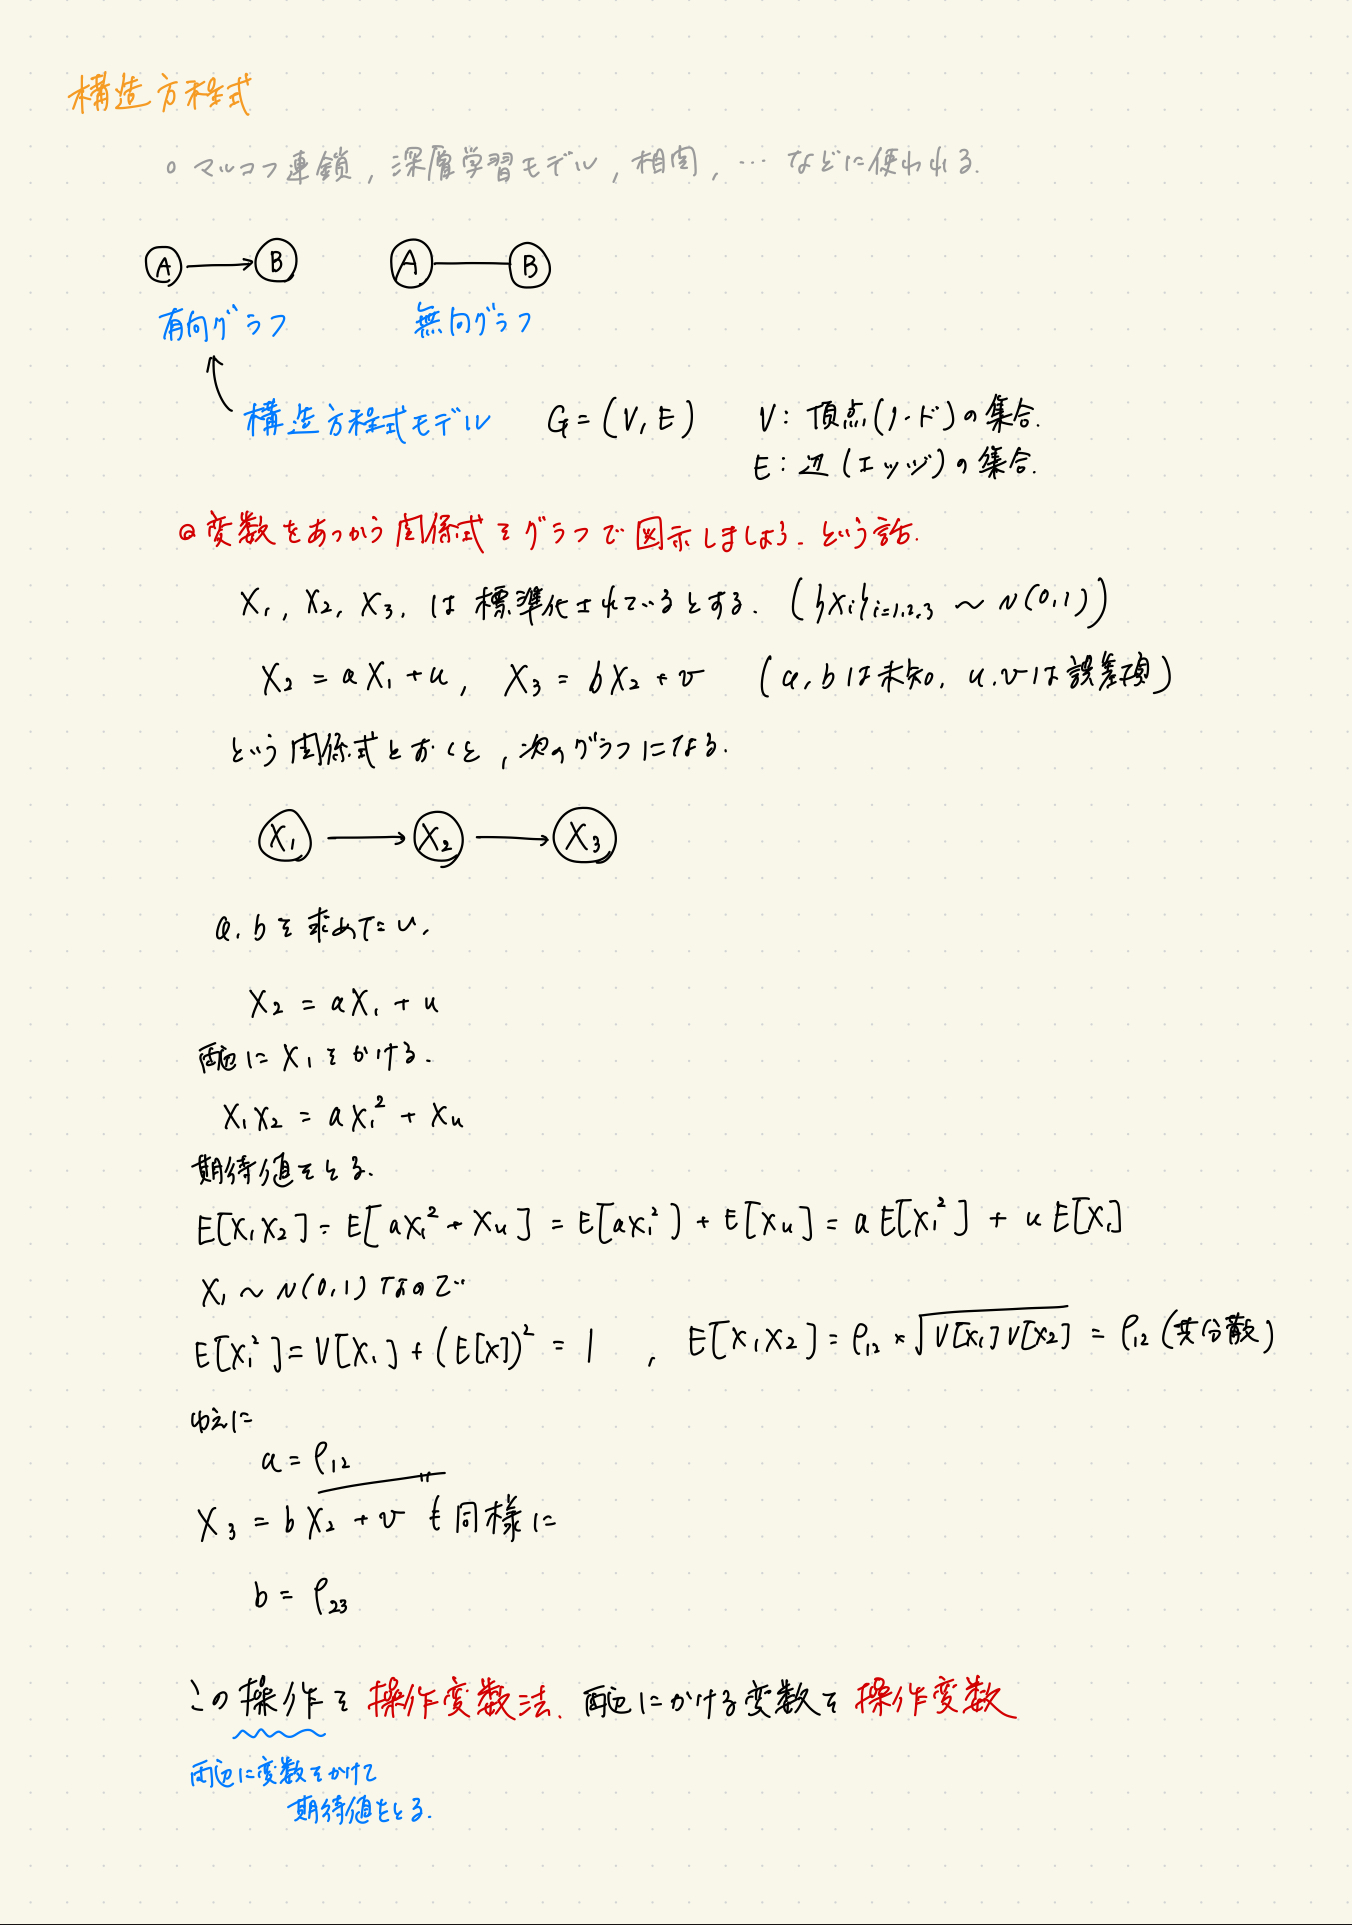 構造方程式
○ マルコフ連鎖, 深層学習モデル, 相関, … などに使われる.
A → B A — B
有向グラフ 無向グラフ
構造方程式モデル G=(V,E) V: 頂点(ノード)の集合.
E: 辺(エッジ)の集合.
◎ 変数をあつかう関係式をグラフで図示しましょう. という話.
X₁, X₂, X₃, は標準化されているとする. ({Xi}i=1,2,3 ~ N(0,1))
X₂ = aX₁ + u, X₃ = bX₂ + v (a, b は未知, u, v は誤差項)
という関係式とおくと, 次のグラフになる.
X₁ → X₂ → X₃
a, b を求めたい,
X₂ = aX₁ + u
両辺に X₁ をかける.
X₁X₂ = aX₁² + Xu
期待値をとる.
E[X₁X₂] = E[aX₁² + Xu] = E[aX₁²] + E[Xu] = aE[X₁²] + uE[X₁]
X₁ ~ N(0,1) なので
E[X₁²] = V[X₁] + (E[X])² = 1 , E[X₁X₂] = ρ₁₂ × √V[X₁]V[X₂] = ρ₁₂ (共分散)
ゆえに
a = ρ₁₂
X₃ = bX₂ + v も同様に
b = ρ₂₃
この操作を操作変数法. 両辺にかける変数を操作変数
両辺に変数をかけて
期待値をとる.